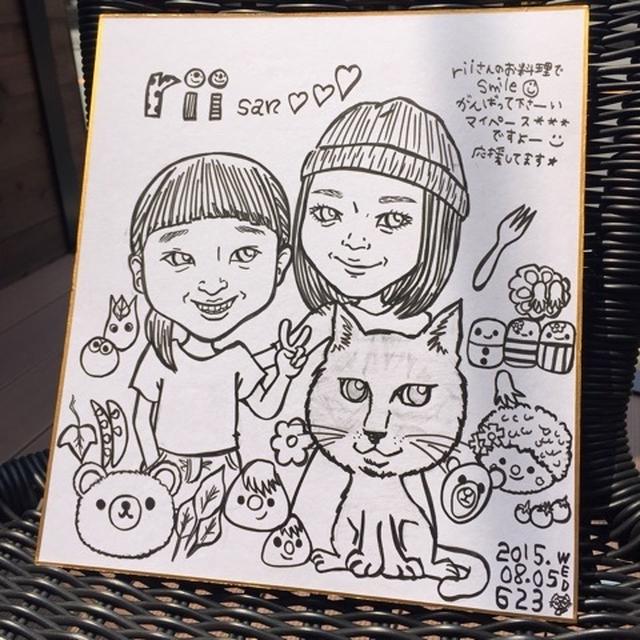 rii san
riiさんのお料理で
Smile
がんばって下さーい
マイペース***
ですよー
応援してます★
2015.
08.05
WED
623